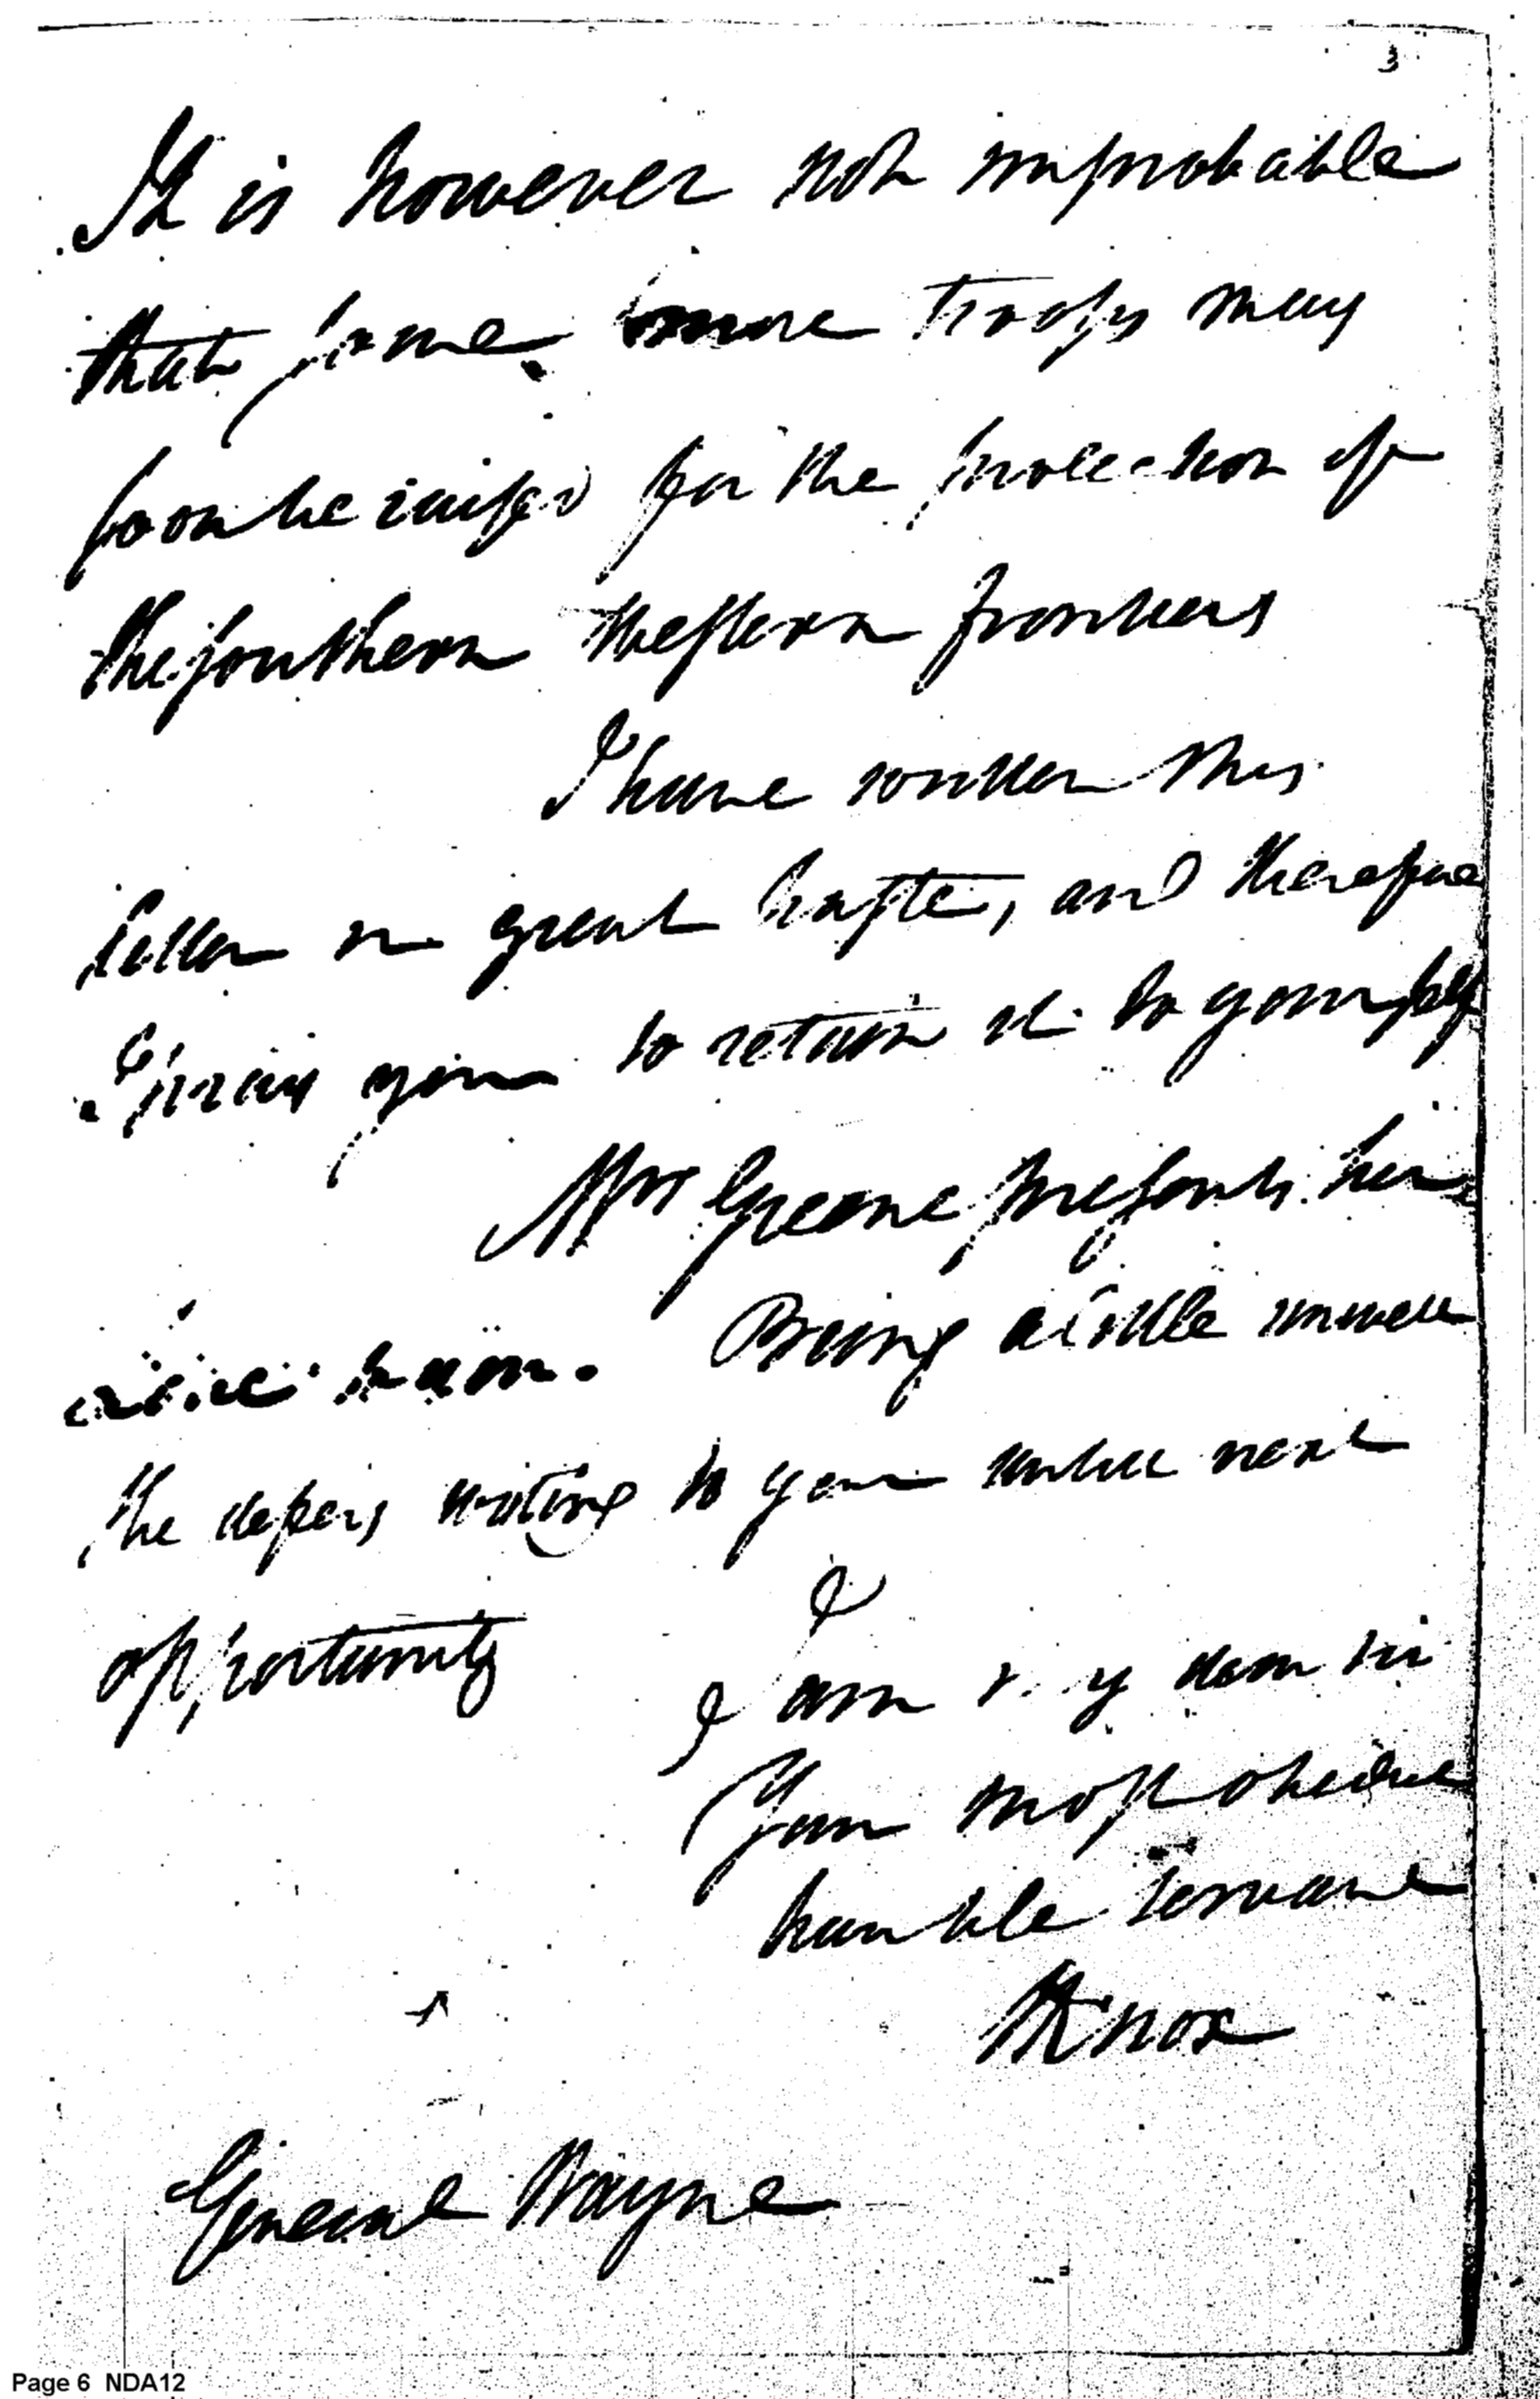 3
It is however not improbable
that some more troops may
soon be raised for the protection of
the southern Western frontiers
I have written this
letter in great haste, and therefore
I pray you to retain it to yourself
Mrs Greene presents her
to you. Being a little unwell
she defers writing to you until next
opportunity
I am my dear sir
Your most obedient
humble servant
HKnox
General Wayne
Page 6 NDA12